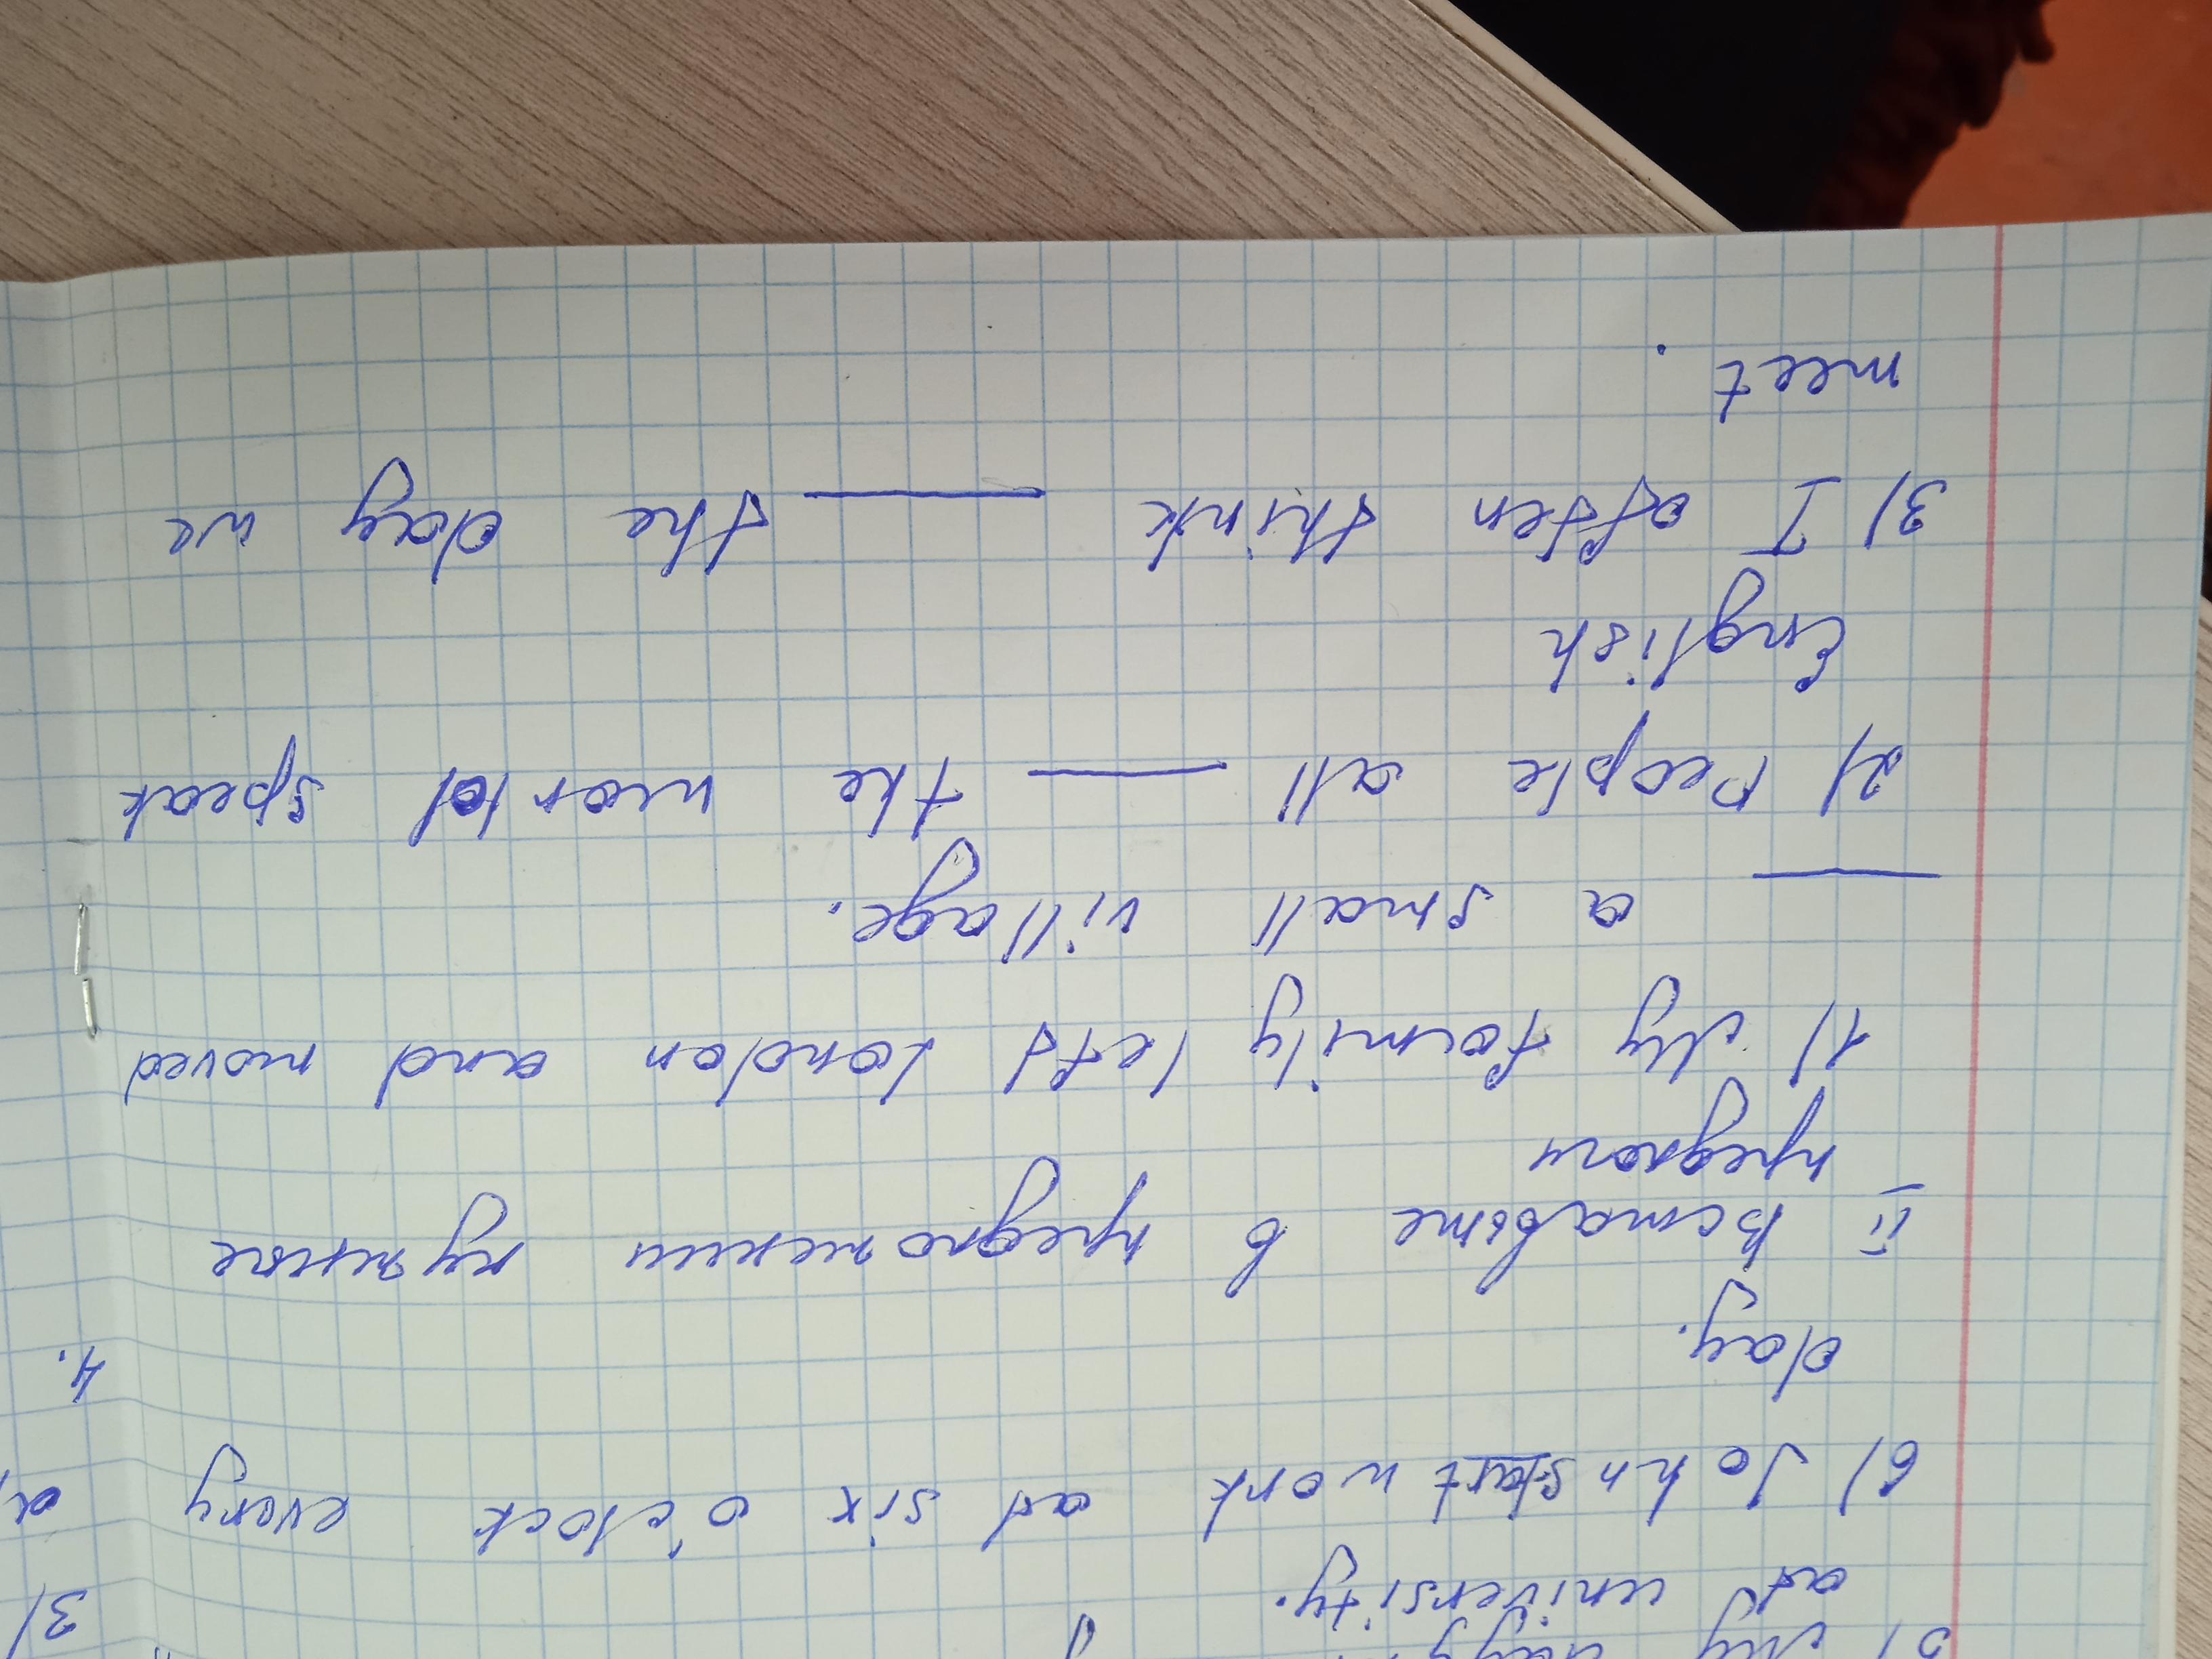 5) My
at university.
6) John start work at six o'clock every
day.
II Вставьте в предложении нужные
предлоги
1) My family left London and moved
____ a small village.
2) People all ____ the world speak
English
3) I often think ____ the day we
meet.
3)
a
4.